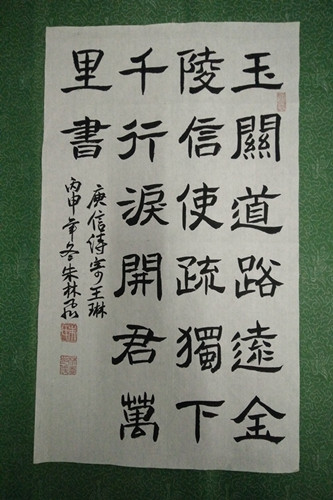 玉關道路遠金
陵信使疏獨下
千行淚開君萬
里書
庚信詩寄王琳
丙申年冬朱林